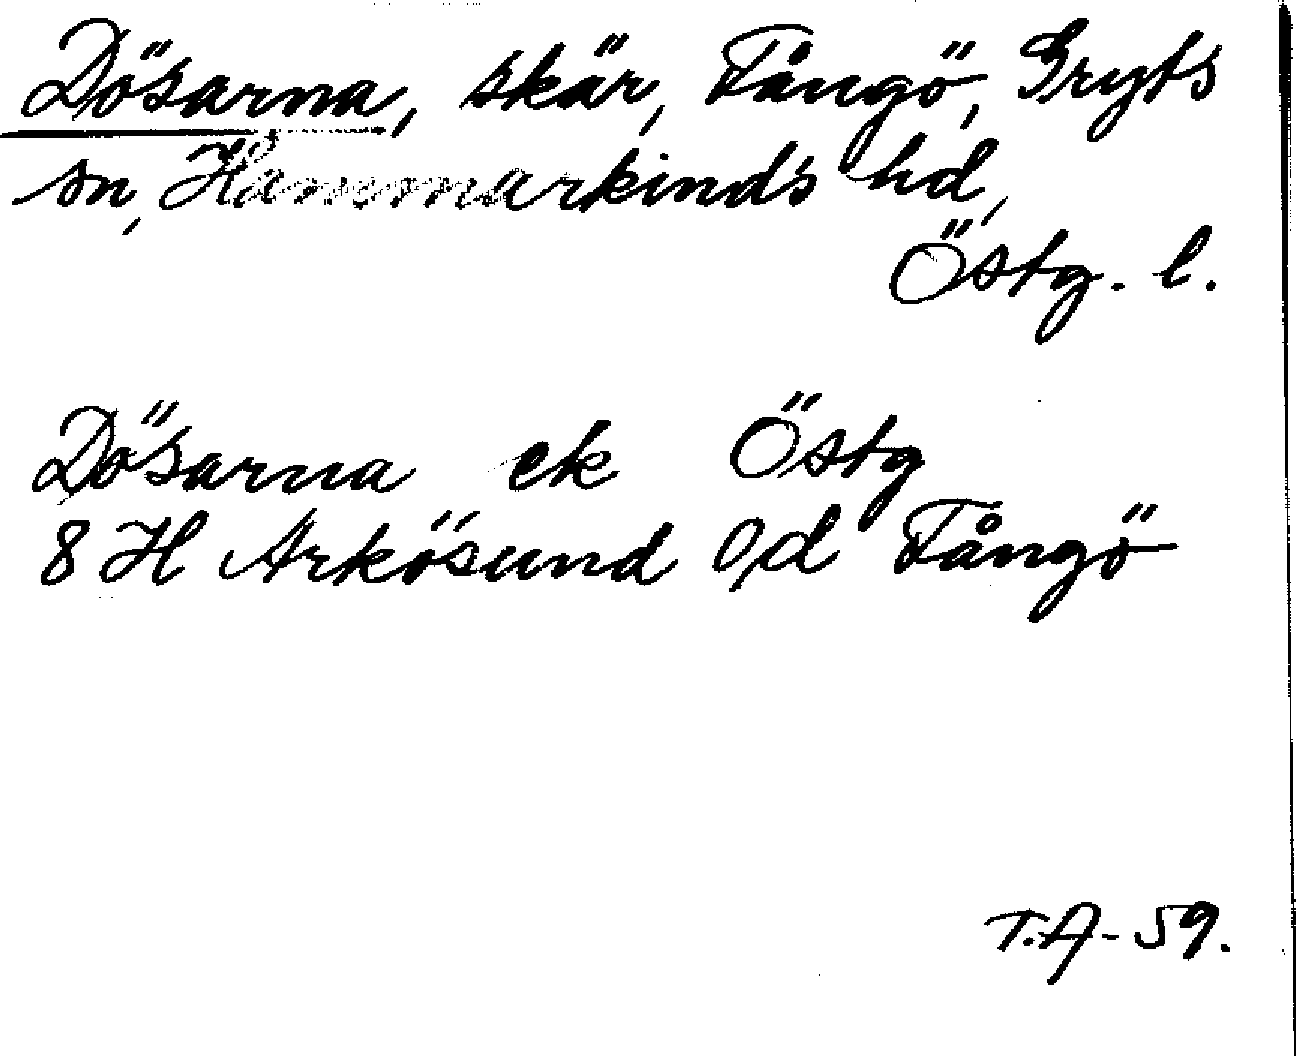 Dösarna, skär, Fångö, Gryts
sn, Hammarkinds hd,
Östg. l.
Dösarna ek Östg
8 H Arkösund O/d Fångö
T.A-59.